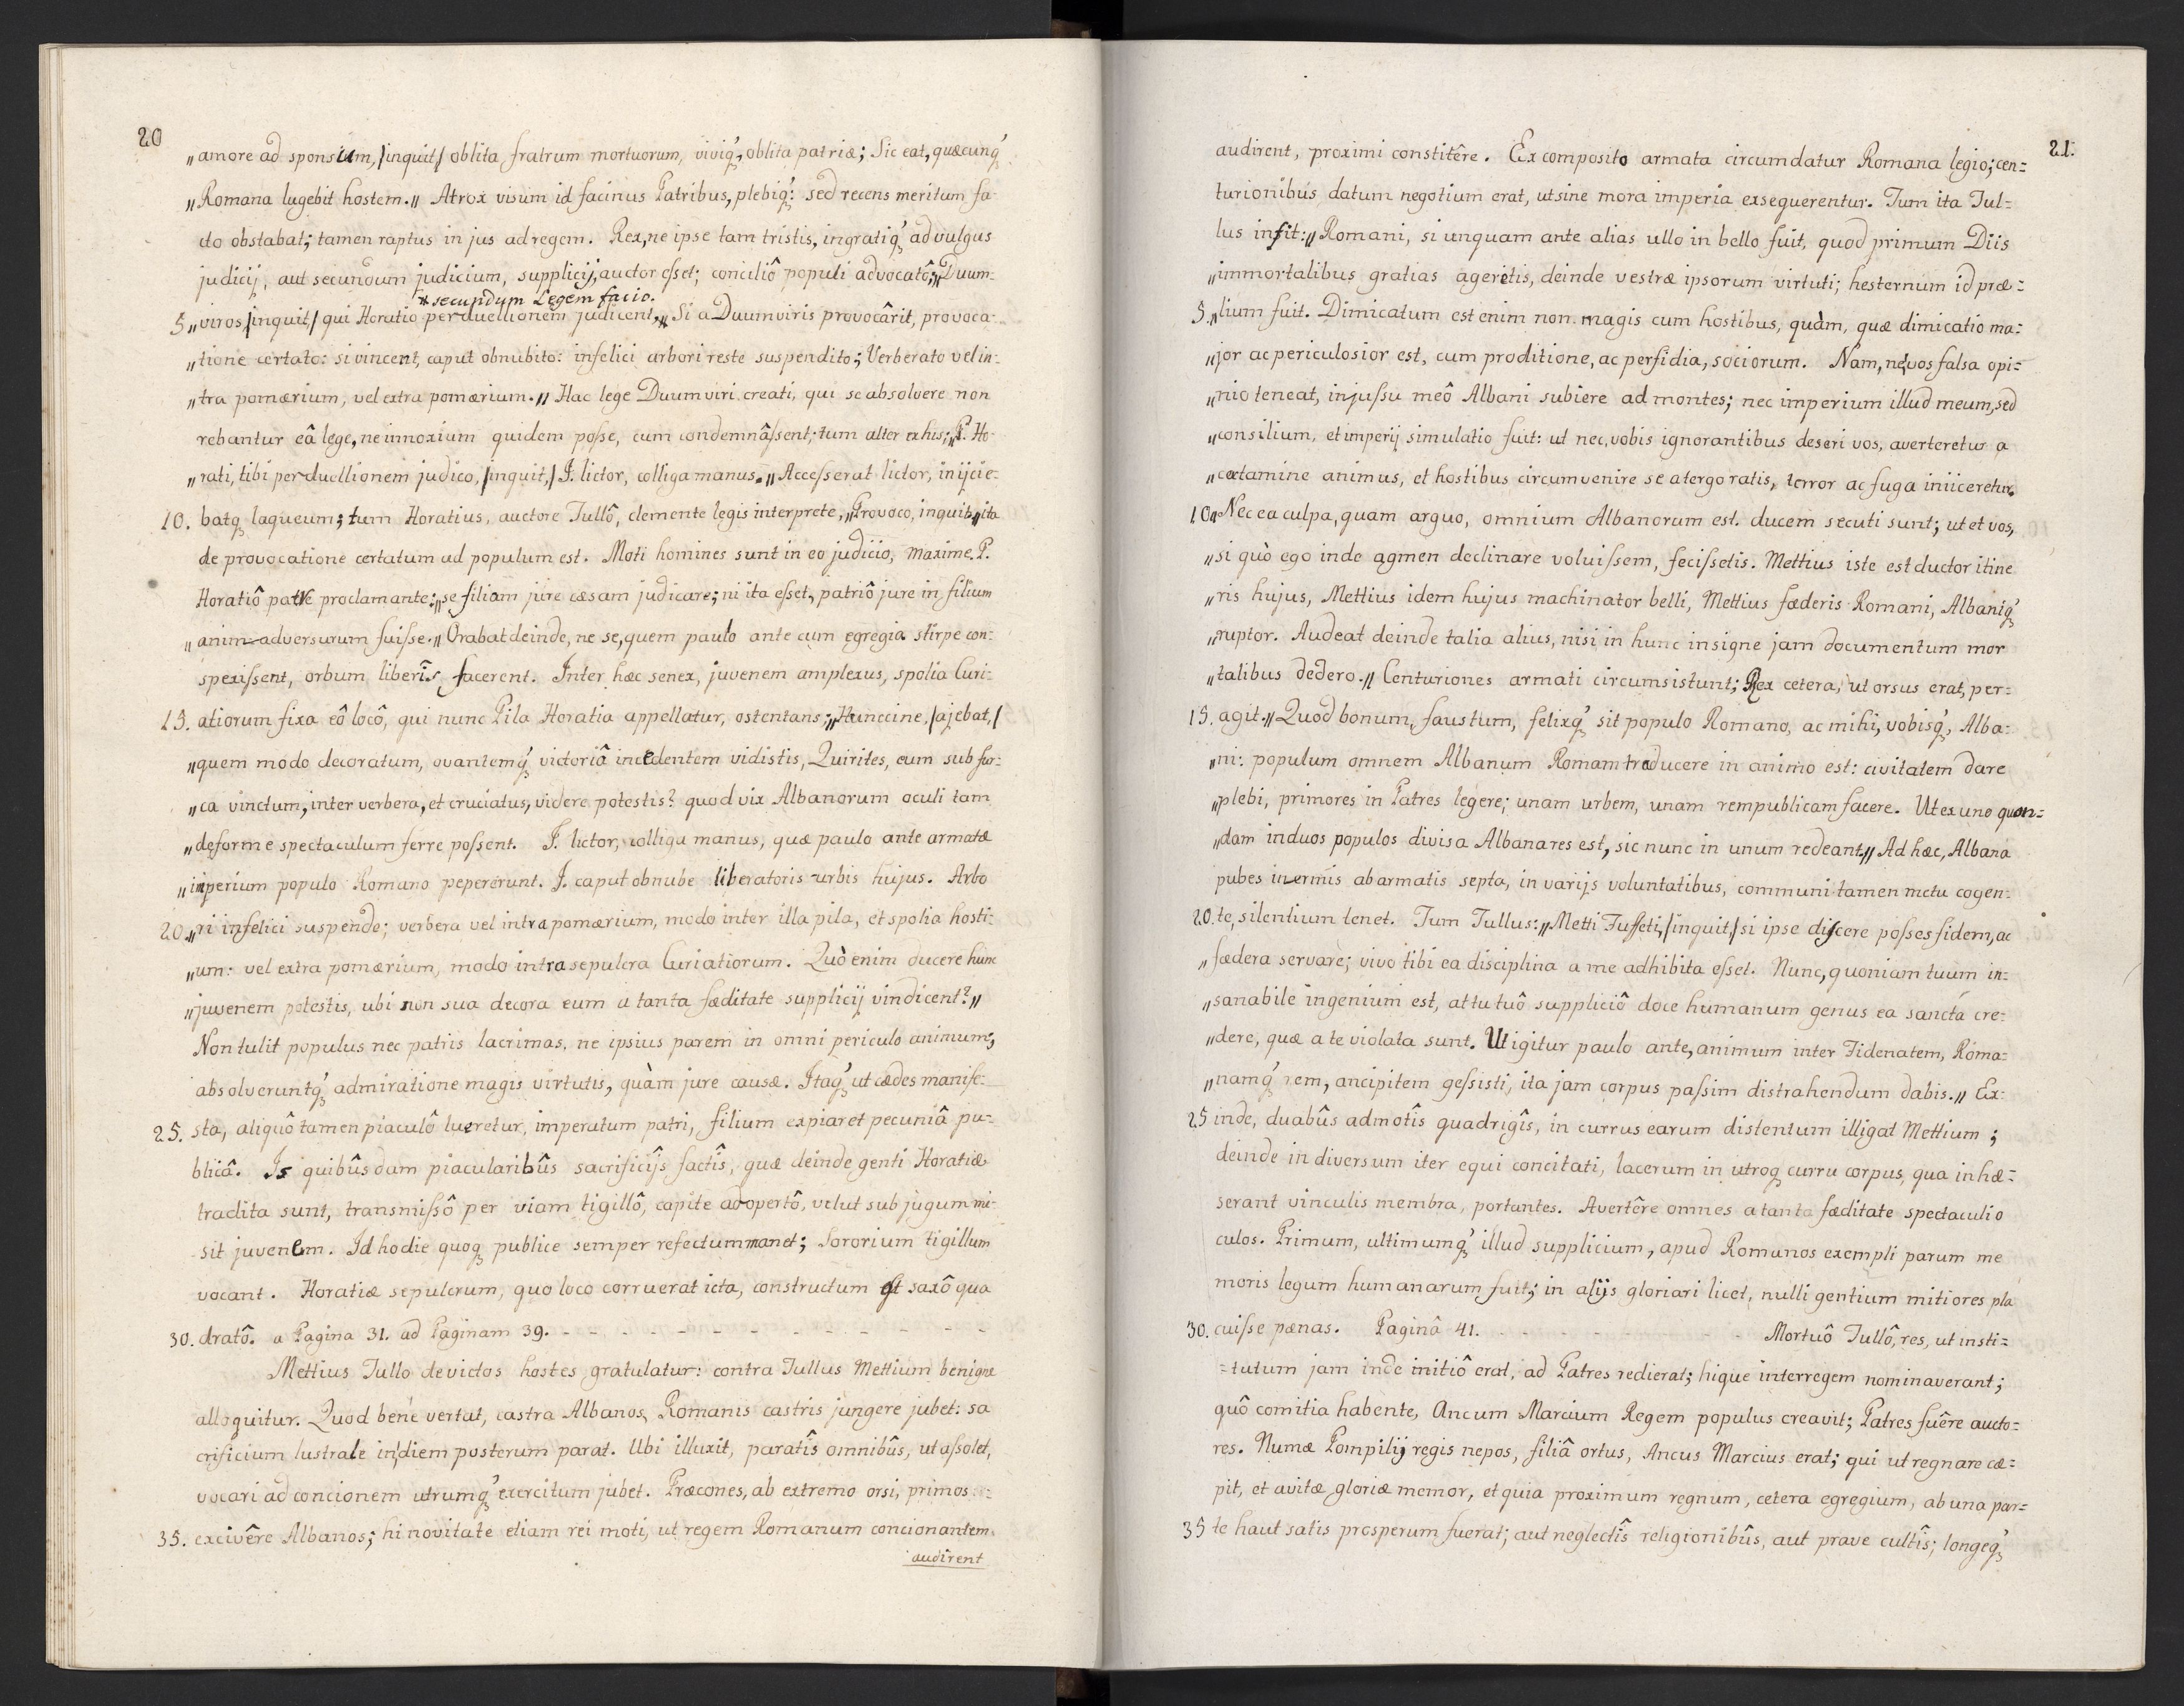 20
„amore ad sponsum, /inquit/ oblita fratrum mortuorum, viviq́ꝫ, oblita patriæ; Sic eat, quæcunq́ꝫ
„Romana lugebit hostem.„ Atrox visum id facinus Patribus, plebiq́ꝫ: sed recens meritum fa-
cto obstabat; tamen raptus in jus ad regem. Rex, ne ipse tam tristis, ingratiq́ꝫ ad vulgus
judicij, aut secundum judicium, supplicij, auctor esset; conciliô populi advocatô; „Duum-
* secundum Legem facio.
5 „viros /inquit/ qui Horatio perduellionem judicent, *„Si a Duumviris provocârit, provoca-
„tione certato: si vincent, caput obnubito: infelici arbori reste suspendito; Verberato vel in-
„tra pomærium, vel extra pomærium.„ Hac lege Duumviri creati, qui se absolvere non
rebantur eâ lege, ne innoxium quidem posse, cum condemnâssent; tum alter ex his; „P. Ho-
„rati, tibi perduellionem judico, /inquit,/ I. lictor, colliga manus.„ Accesserat lictor, inijcie-
10. batqꝫ laqueum; tum Horatius, auctore Tullô, clemente legis interprete, „Provoco, inquit„ ita
de provocatione certatum ad populum est. Moti homines sunt in eo judicio, maxime P.
Horatiô patre proclamante: „se filiam jure cæsam judicare; ni ita esset, patriô jure in filium
„animadversurum fuisse.„ Orabat deinde, ne se, quem paulo ante cum egregia stirpe con-
spexissent, orbum liberîs facerent. Inter hæc senex, juvenem amplexus, spolia Curi-
15. atiorum fixa eô locô, qui nunc Pila Horatia appellatur, ostentans; „Hunccine, /ajebat,/
„quem modo decoratum, ovantemq́ꝫ victoriâ incedentem vidistis, Quirites, eum sub fur-
„ca vinctum, inter verbera, et cruciatus, videre potestis? quod vix Albanorum oculi tam
„deforme spectaculum ferre possent. I. lictor, colliga manus, quæ paulo ante armatæ
„imperium populo Romano pepererunt. I. caput obnube liberatoris urbis hujus. Arbo
20. „ri infelici suspende; verbera vel intra pomærium, modo inter illa pila, et spolia hosti-
„um: vel extra pomærium, modo intra sepulcra Curiatiorum. Quò enim ducere hunc
„juvenem potestis, ubi non sua decora eum a tanta fæditate supplicij vindicent?„
Non tulit populus nec patris lacrimas, ne ipsius parem in omni periculo animum;
absolveruntq́ꝫ admiratione magis virtutis, quàm jure causæ. Itaq́ꝫ ut cædes manife-
25. sta, aliquô tamen piaculô lueretur, imperatum patri, filium expiaret pecuniâ pu-
blicâ. Is quibûsdam piacularibûs sacrificijs factîs, quæ deinde genti Horatiæ
tradita sunt, transmissô per viam tigillô, capite adopertô, velut sub jugum mi-
sit juvenem. Id hodie quoqꝫ publice semper refectum manet; Sororium tigillum
vocant. Horatiæ sepulcrum, quo loco corruerat icta, constructum est saxô qua
30. dratô. a Pagina 31. ad Paginam 39. - - - - - - - - - - - - -
Mettius Tullo devictos hostes gratulatur: contra Tullus Mettium benigne
alloquitur. Quod bene vertat, castra Albanos, Romanis castris jungere jubet: sa
crificium lustrale in diem posterum parat. Ubi illuxit, paratîs omnibûs, ut assolet,
vocari ad concionem utrumq́ꝫ exercitum jubet. Præcones, ab extremo orsi, primos
35. excivêre Albanos; hi novitate etiam rei moti, ut regem Romanum concionantem
audirent
21.
audirent, proximi constitêre. Ex composito armata circumdatur Romana legio; cen-
turionibus datum negotium erat, ut sine mora imperia exsequerentur. Tum ita Tul-
lus infit: „Romani, si unquam ante alias ullo in bello fuit, quod primum Diis
„immortalibus gratias ageretis, deinde vestræ ipsorum virtuti; hesternum id præ-
5. „lium fuit. Dimicatum est enim non magis cum hostibus, quàm, quæ dimicatio ma-
„jor ac periculosior est, cum proditione, ac perfidia, sociorum. Nam, ne vos falsa opi-
„nio teneat, injussu meô Albani subiere ad montes; nec imperium illud meum, sed
„consilium, et imperij simulatio fuit: ut nec, vobis ignorantibus deseri vos, averteretur a
„certamine animus, et hostibus circumvenire se a tergo ratis, terror ac fuga iniiceretur.
10 „Nec ea culpa, quam arguo, omnium Albanorum est. ducem secuti sunt; ut et vos,
„si quò ego inde agmen declinare voluissem, fecissetis. Mettius iste est ductor itine
„ris hujus, Mettius idem hujus machinator belli, Mettius fæderis Romani, Albaniq́ꝫ
„ruptor. Audeat deinde talia alius, nisi in hunc insigne jam documentum mor
„talibus dedero.„ Centuriones armati circumsistunt; Rex cetera, ut orsus erat, per-
15. agit. „Quod bonum, faustum, felixq́ꝫ sit populo Romano, ac mihi, vobisq́ꝫ, Alba-
„ni: populum omnem Albanum Romam traducere in animo est: civitatem dare
„plebi, primores in Patres legere; unam urbem, unam rempublicam facere. Ut ex uno quon-
„dam in duos populos divisa Albana res est, sic nunc in unum redeant.„ Ad hæc, Albana
pubes inermis ab armatis septa, in varijs voluntatibus, communi tamen metu cogen-
20. te, silentium tenet. Tum Tullus: „Metti Fuffeti, /inquit,/ si ipse discere posses fidem, ac
„fædera servare; vivo tibi ea disciplina a me adhibita esset. Nunc, quoniam tuum in-
„sanabile ingenium est, at tu tuô suppliciô doce humanum genus ea sancta cre-
„dere, quæ a te violata sunt. Ut igitur paulo ante, animum inter Fidenatem, Roma-
„namq́ꝫ rem, ancipitem gessisti, ita jam corpus passim distrahendum dabis.„ Ex-
25 inde, duabûs admotîs quadrigîs, in currus earum distentum illigat Mettium;
deinde in diversum iter equi concitati, lacerum in utroqꝫ curru corpus, qua inhæ-
serant vinculis membra, portantes. Avertêre omnes a tanta fæditate spectaculi o
culos. Primum, ultimumq́ꝫ illud supplicium, apud Romanos exempli parum me
moris legum humanarum fuit; in alijs gloriari licet, nulli gentium mitiores pla
30. cuisse pænas. Paginâ 41. - - - - - - - - - Mortuô Tullô, res, ut insti-
-tutum jam inde initiô erat, ad Patres redierat; hique interregem nominaverant;
quô comitia habente, Ancum Marcium Regem populus creavit; Patres fuêre aucto-
res. Numæ Pompilij regis nepos, filiâ ortus, Ancus Marcius erat; qui ut regnare cæ-
pit, et avitæ gloriæ memor, et quia proximum regnum, cetera egregium, ab una par-
35 te haut satis prosperum fuerat; aut neglectîs religionibûs, aut prave cultîs; longeq́ꝫ